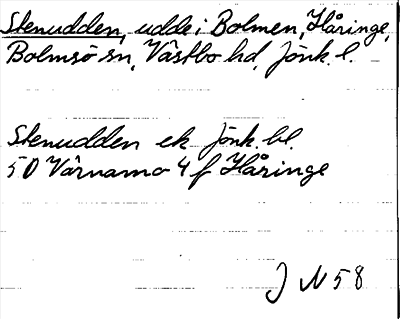 Stenudden, udde i Bolmen, Håringe,
Bolmsö sn, Västbo hd, Jönk. l.
Stenudden ek Jönk. bl.
5 D Värnamo 4 f Håringe
J N 58